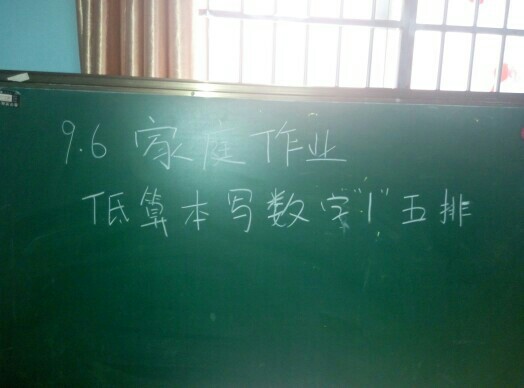 9.6 家庭作业
低算本写数字"1"五排